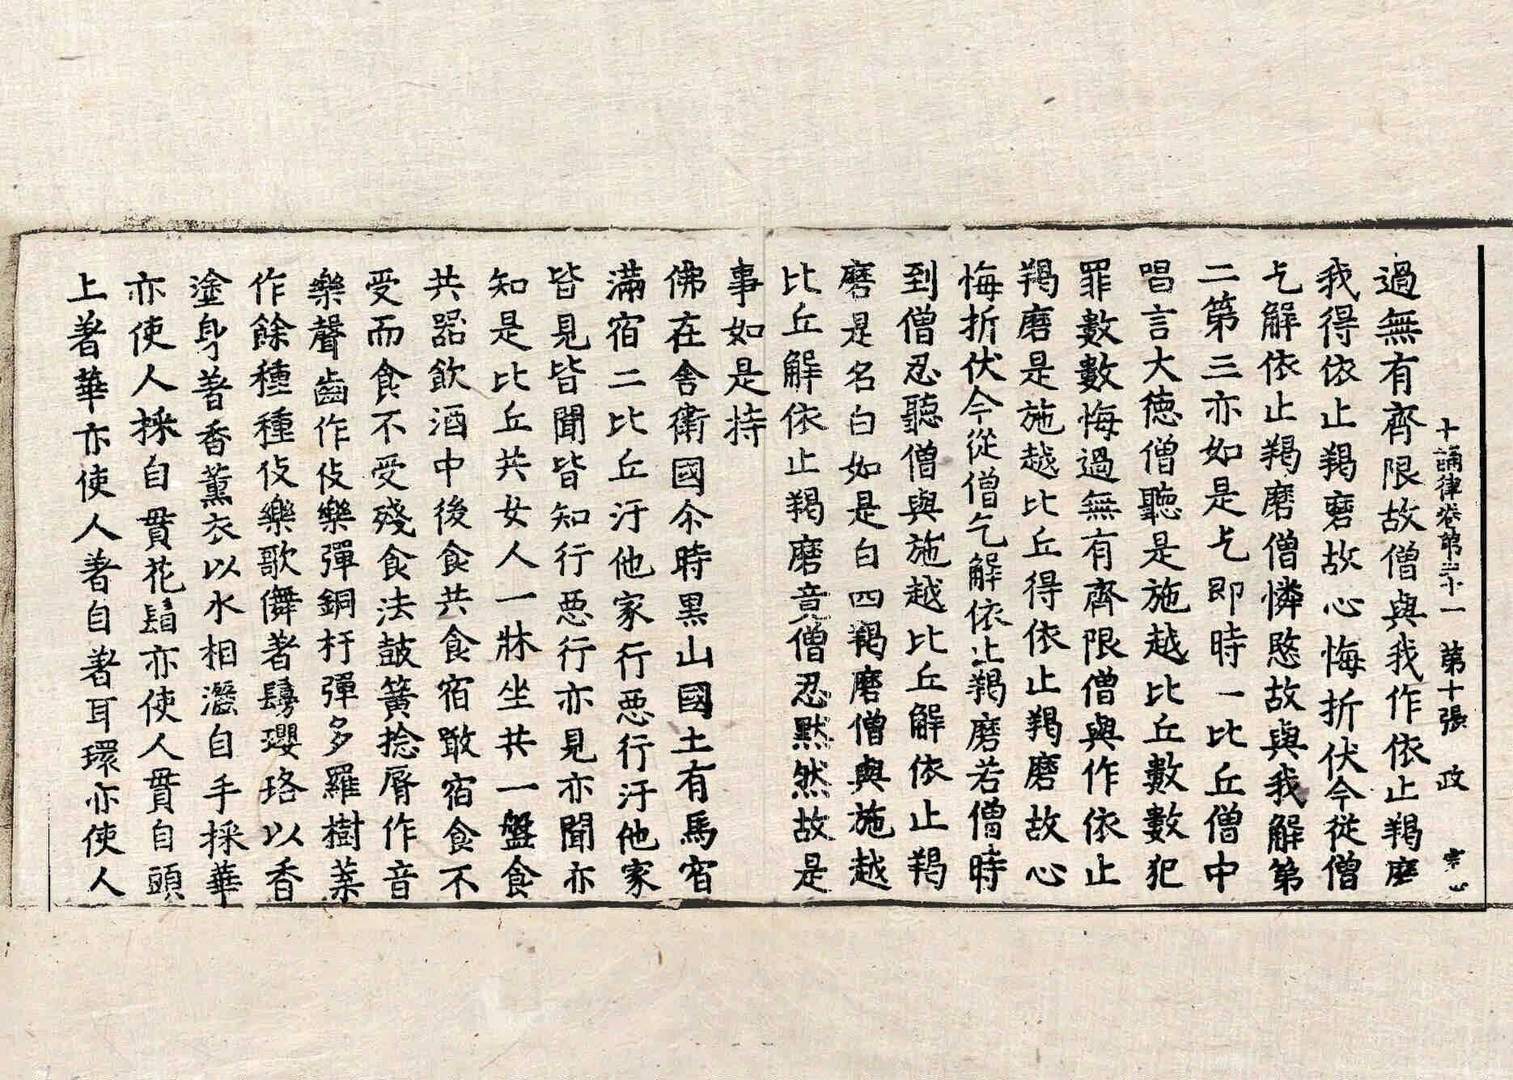 十誦律卷第三十一 第十張 政
過無有齊限故僧與我作依止羯磨
我得依止羯磨故心悔折伏今從僧
乞解依止羯磨僧憐愍故與我解第
二第三亦如是乞即時一比丘僧中
唱言大德僧聽是施越比丘數數犯
罪數數悔過無有齊限僧與作依止
羯磨是施越比丘得依止羯磨故心
悔折伏今從僧乞解依止羯磨若僧時
到僧忍聽僧與施越比丘解依止羯
磨是名白如是白四羯磨僧與施越
比丘解依止羯磨竟僧忍默然故是
事如是持
佛在舍衛國尒時黑山國土有馬宿
滿宿二比丘汙他家行惡行汙他家
皆見皆聞皆知行惡行亦見亦聞亦
知是比丘共女人一牀坐共一盤食
共器飲酒中後食共食宿噉宿食不
受而食不受殘食法鼓簧捻脣作音
樂聲齒作伎樂彈銅杅彈多羅樹葉
作餘種種伎樂歌儛著鬘瓔珞以香
塗身著香薰衣以水相灑自手採華
亦使人採自貫花鬘亦使人貫自頭
上著華亦使人著自著耳環亦使人